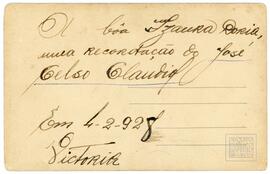 A bôa Izaura Doria,
uma recordação do José
Celso Claudio
Em 4-2-928
Victoria